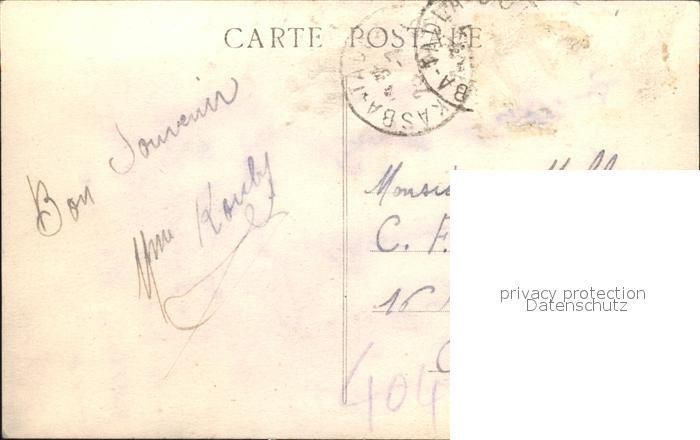 CARTE POSTALE
KASBA-TADLA
KASBA-TADLA
Bon Souvenir
Mme Kouby
Monsie
C. F.
16
C
404
privacy protection
Datenschutz